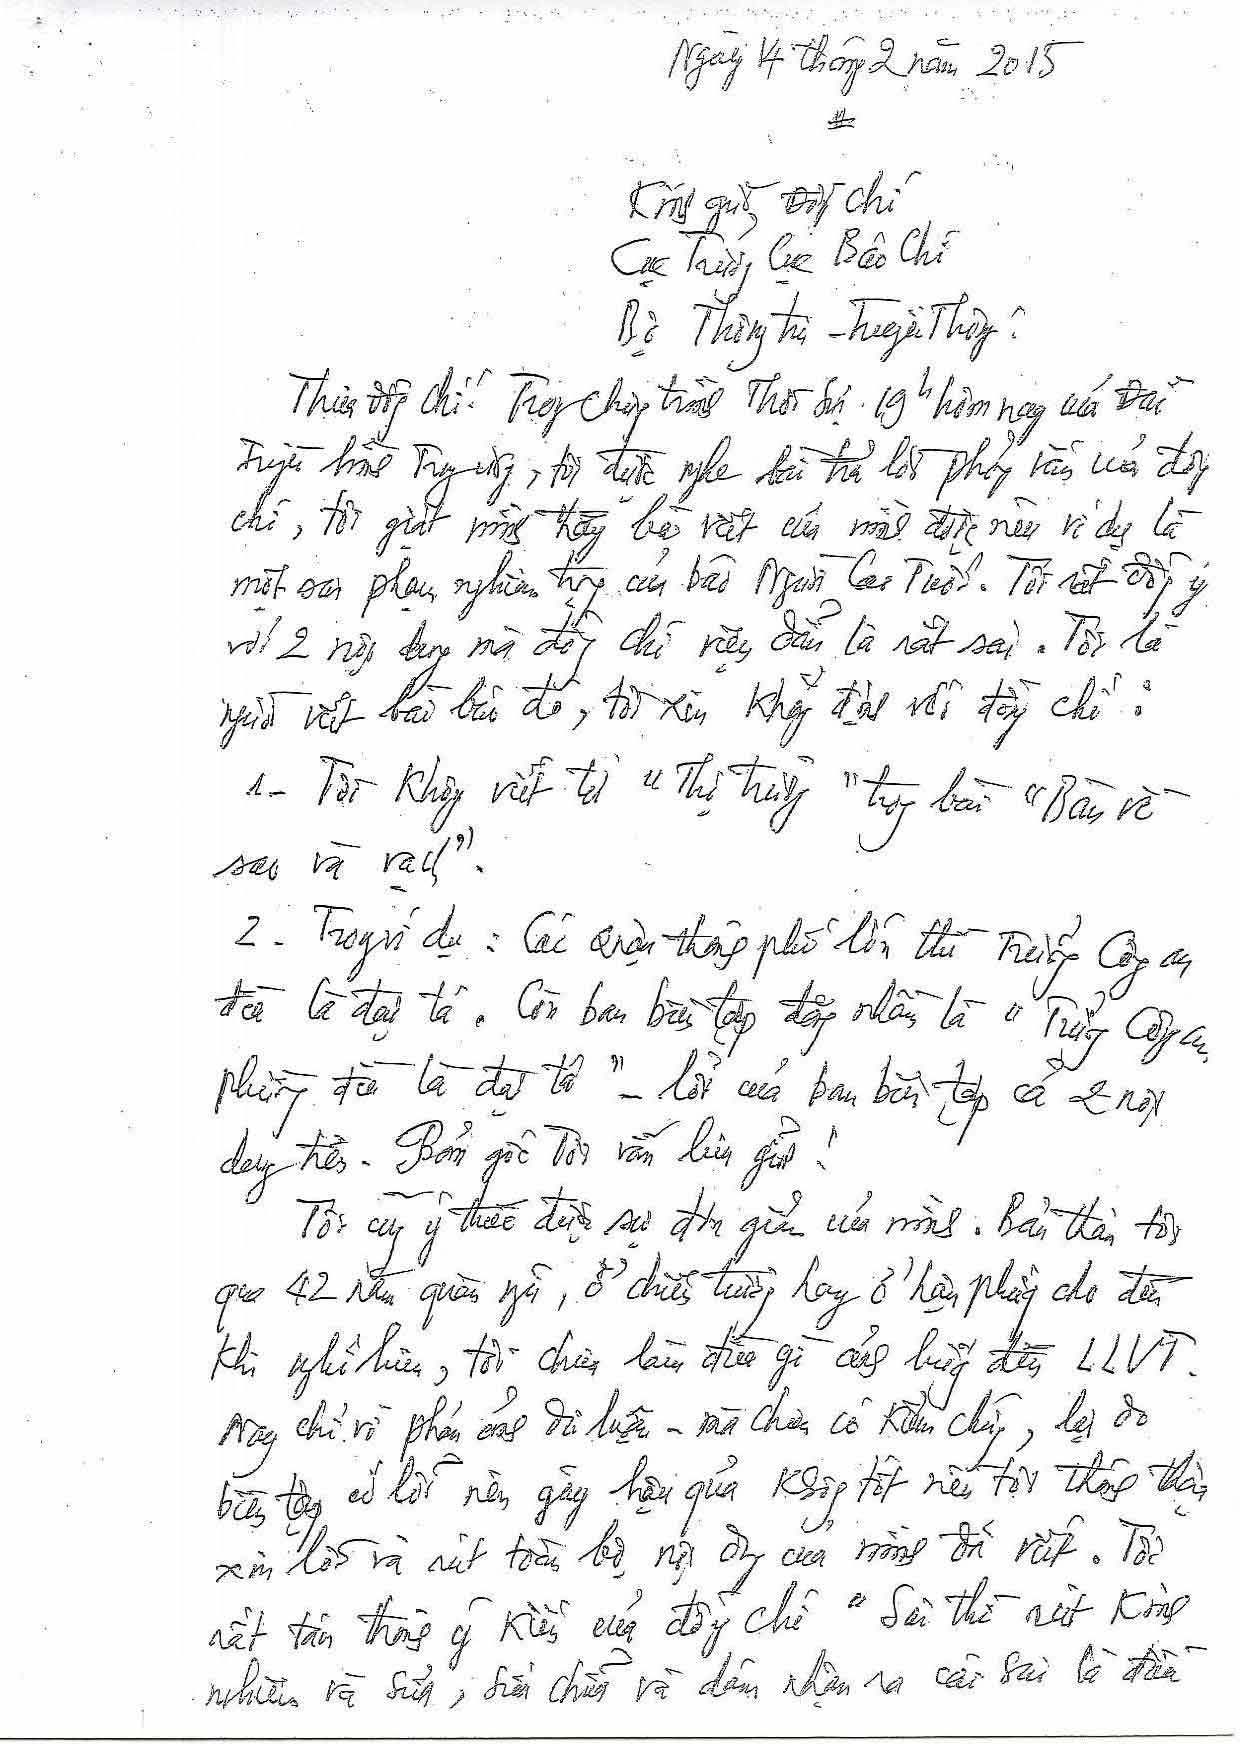 Ngày 14 tháng 2 năm 2015
Kính gửi, Đồng chí
Cục Trưởng Cục Báo Chí
Bộ Thông tin - Truyền Thông:
Thưa đồng chí! Trong chương trình Thời Sự 19h hôm nay của Đài
Truyền hình Trung ương, tôi được nghe bài trả lời phỏng vấn của đồng
chí, tôi giật mình thấy bài viết của mình được nêu ví dụ là
một sai phạm nghiêm trọng của báo Người Cao Tuổi. Tôi rất đồng ý
với 2 nội dung mà đồng chí viện dẫn là rất sai. Tôi là
người viết bài báo đó, tôi xin khẳng định với đồng chí:
1- Tôi không viết từ "Thị trường" trong bài "Bàn về
sao và vạch".
2- Trong ví dụ: Các Quận thành phố lớn thì Trưởng Công an
đều là đại tá. Còn ban biên tập đăng nhầm là "Trưởng Công an
phường đều là đại tá" - lỗi của ban biên tập cả 2 nội
dung trên. Bản gốc Tôi vẫn lưu giữ!
Tôi cũng ý thức được sự đơn giản của mình. Bản thân tôi
qua 42 năm quân ngũ, ở chiến trường hay ở hậu phương cho đến
khi nghỉ hưu, tôi chưa làm điều gì ảnh hưởng đến LLVT.
Nay chỉ vì phản ánh dư luận - mà chưa có kiểm chứng, lại do
biên tập có lỗi nên gây hậu quả không tốt nên tôi thành thật
xin lỗi và rút toàn bộ nội dung của mình đã viết. Tôi
rất tán thành ý kiến của đồng chí "Sai thì rút kinh
nghiệm và sửa, sửa chữa và dám nhận ra cái sai là điều